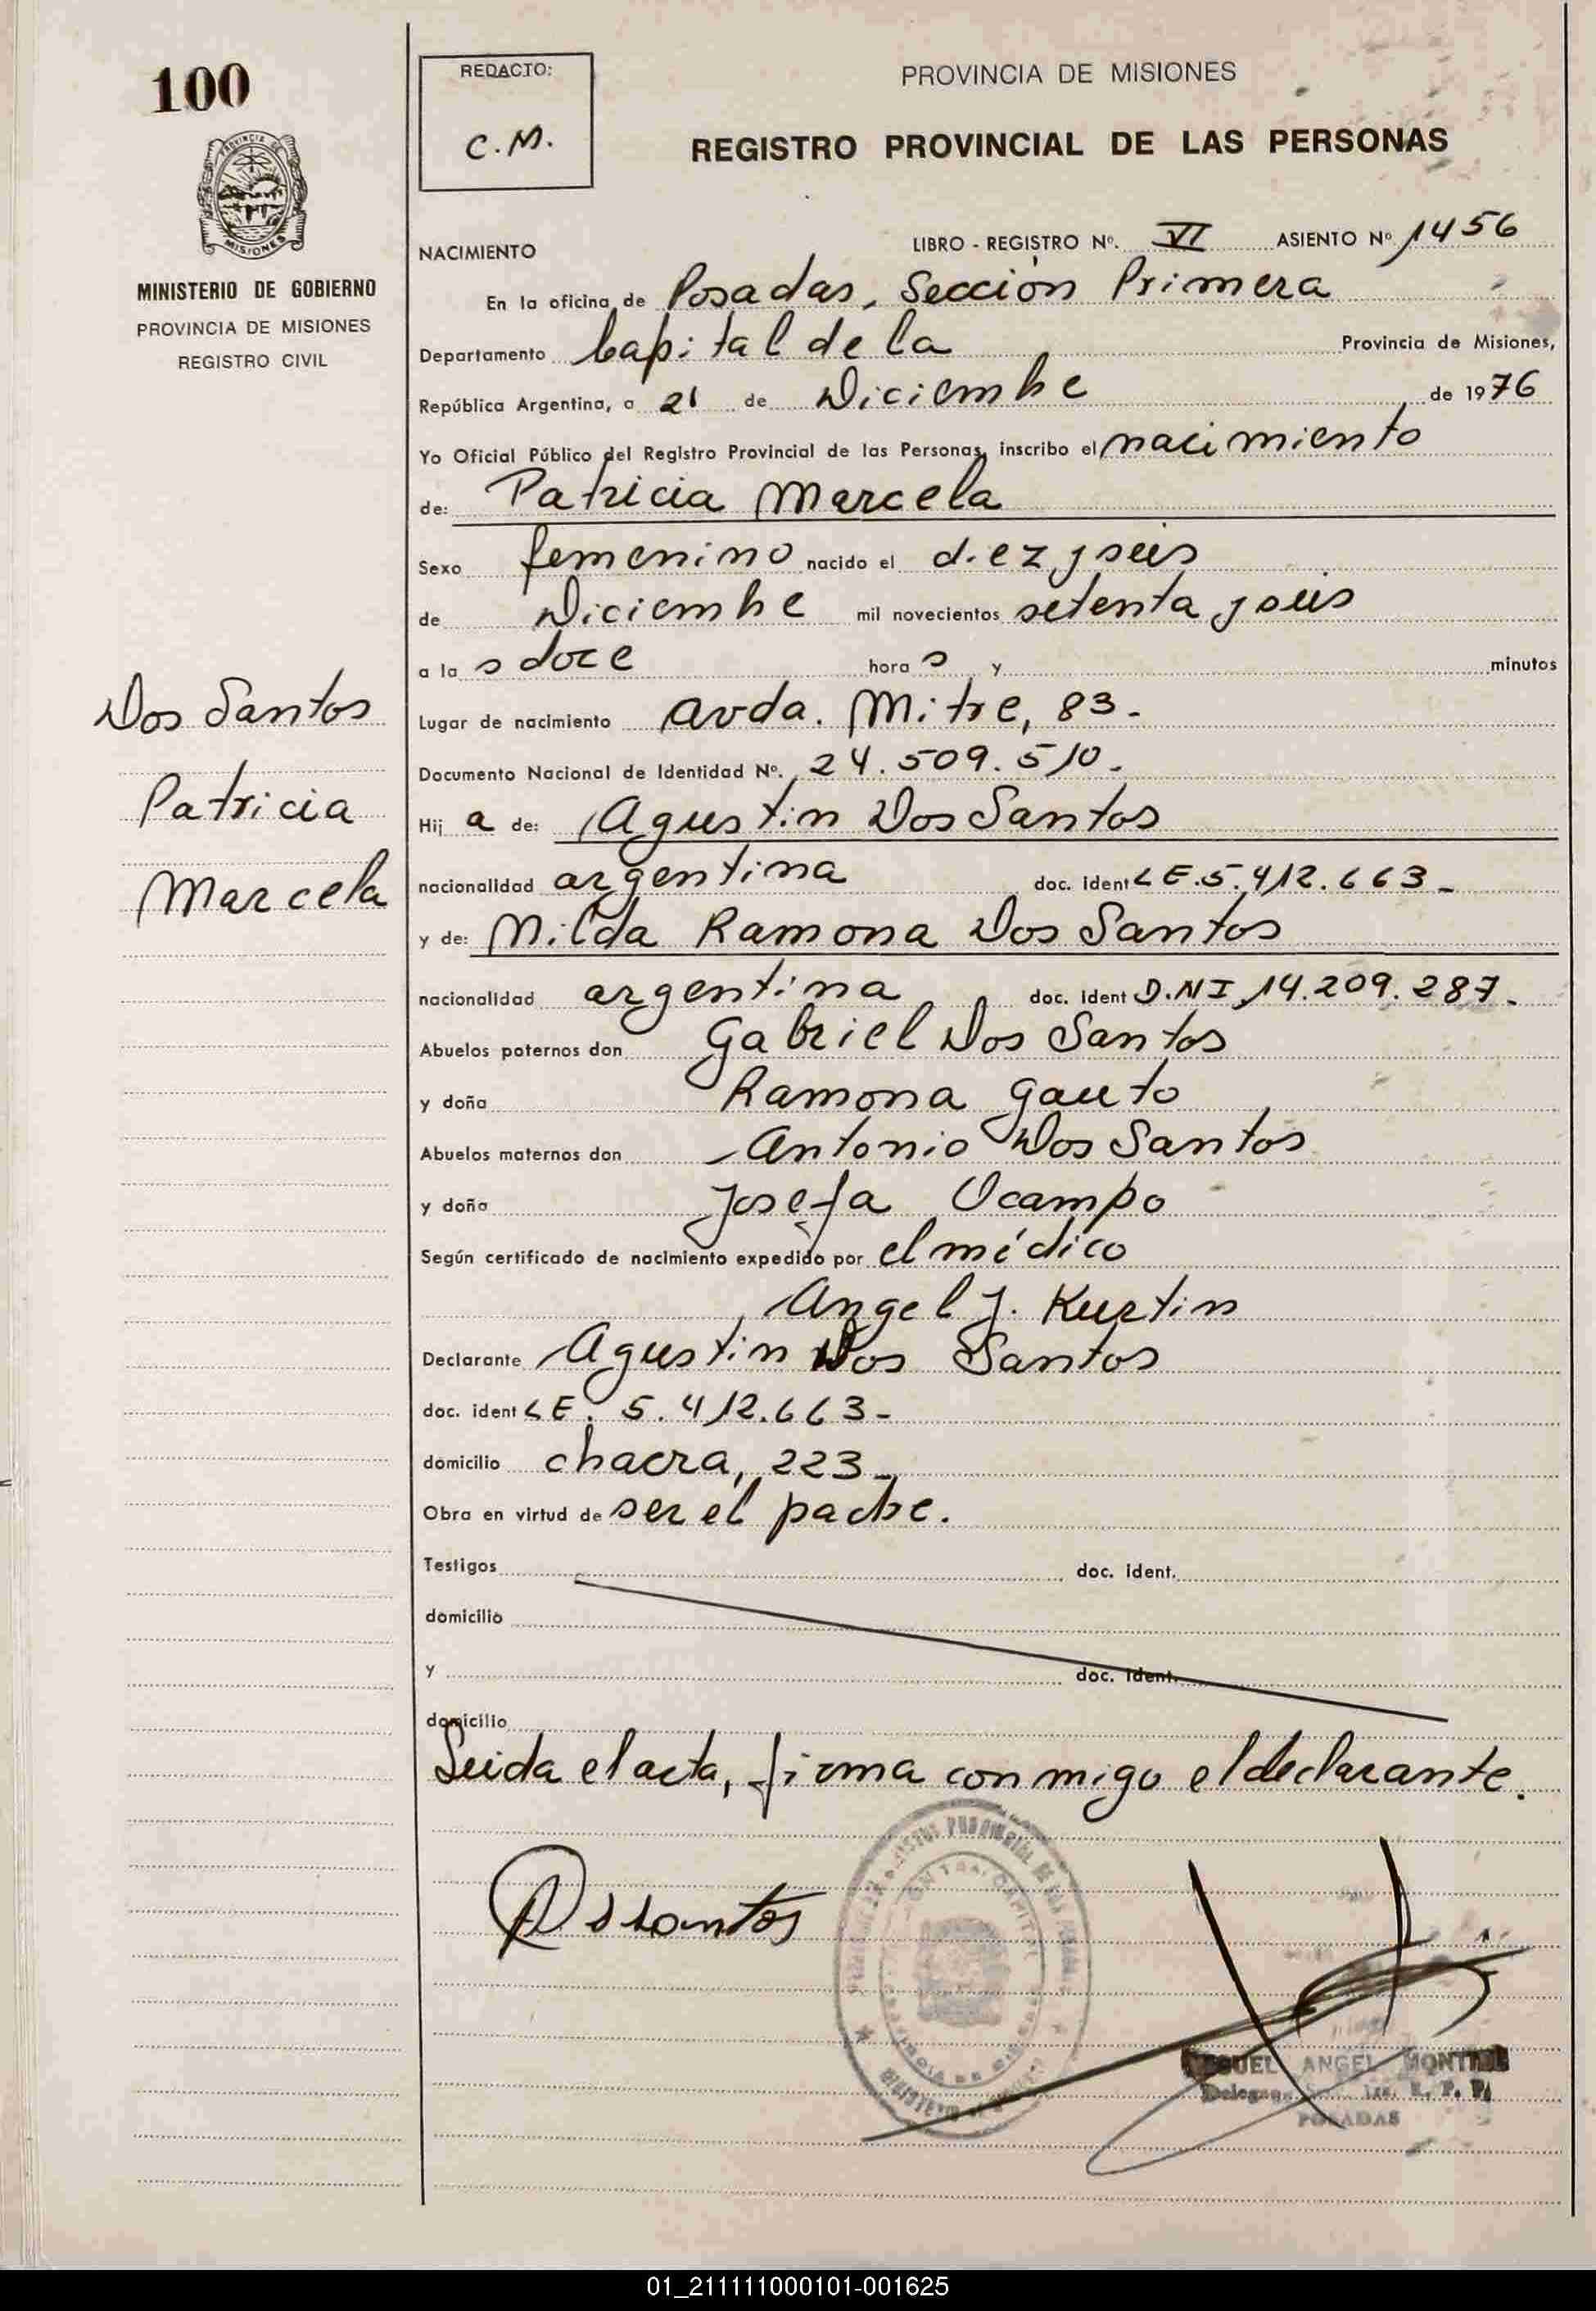 100
REDACTO:
C.M.
PROVINCIA DE MISIONES
REGISTRO PROVINCIAL DE LAS PERSONAS
PROVINCIA DE
MISIONES
MINISTERIO DE GOBIERNO
PROVINCIA DE MISIONES
REGISTRO CIVIL
Dos Santos
Patricia
Marcela
NACIMIENTO LIBRO - REGISTRO Nº. VI ASIENTO Nº 1456
En la oficina de Posadas, Sección Primera
Departamento Capital de la Provincia de Misiones,
República Argentina, a 21 de Diciembre de 1976
Yo Oficial Público del Registro Provincial de las Personas, inscribo el nacimiento
de: Patricia Marcela
Sexo femenino nacido el diez y seis
de Diciembre mil novecientos setenta y seis
a la s doce hora s y minutos
Lugar de nacimiento avda. Mitre, 83.-
Documento Nacional de Identidad Nº. 24.509.510.
Hij a de: Agustin Dos Santos
nacionalidad argentina doc. ident LE.5.412.663-
y de: Milda Ramona Dos Santos
nacionalidad argentina doc. ident D.NI.14.209.287.
Abuelos paternos don Gabriel Dos Santos
y doña Ramona Gauto
Abuelos maternos don Antonio Dos Santos
y doña Josefa Ocampo
Según certificado de nacimiento expedido por el médico
Angel J. Kurtin
Declarante Agustin Dos Santos
doc. ident LE. 5.412.663-
domicilio chacra, 223-
Obra en virtud de ser el padre.
Testigos doc. ident.
domicilio
y doc. ident.
domicilio
Leida el acta, firma conmigo el declarante.
ANGEL
POSADAS
01_211111000101-001625